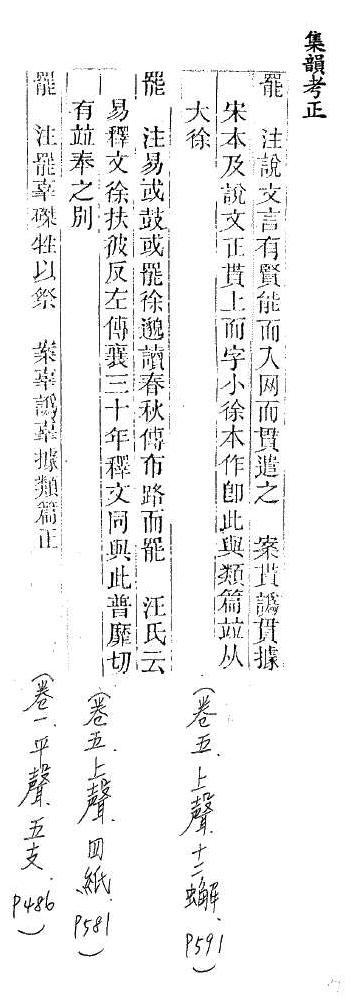 集韻考正
罷　注說文言有賢能而入网而貫遣之　案貰譌貫據
宋本及說文正貰上而字小徐本作卽此與類篇竝从
大徐
(卷五．上聲．十二蟹．P591)
罷　注易或鼓或罷徐邈讀春秋傳布路而罷　汪氏云
易釋文徐扶彼反左傳襄三十年釋文同與此普靡切
有竝奉之別
(卷五．上聲．四紙．P581)
罷　注罷辜磔牲以祭　案辜譌辜據類篇正
(卷一．平聲．五支．P486)